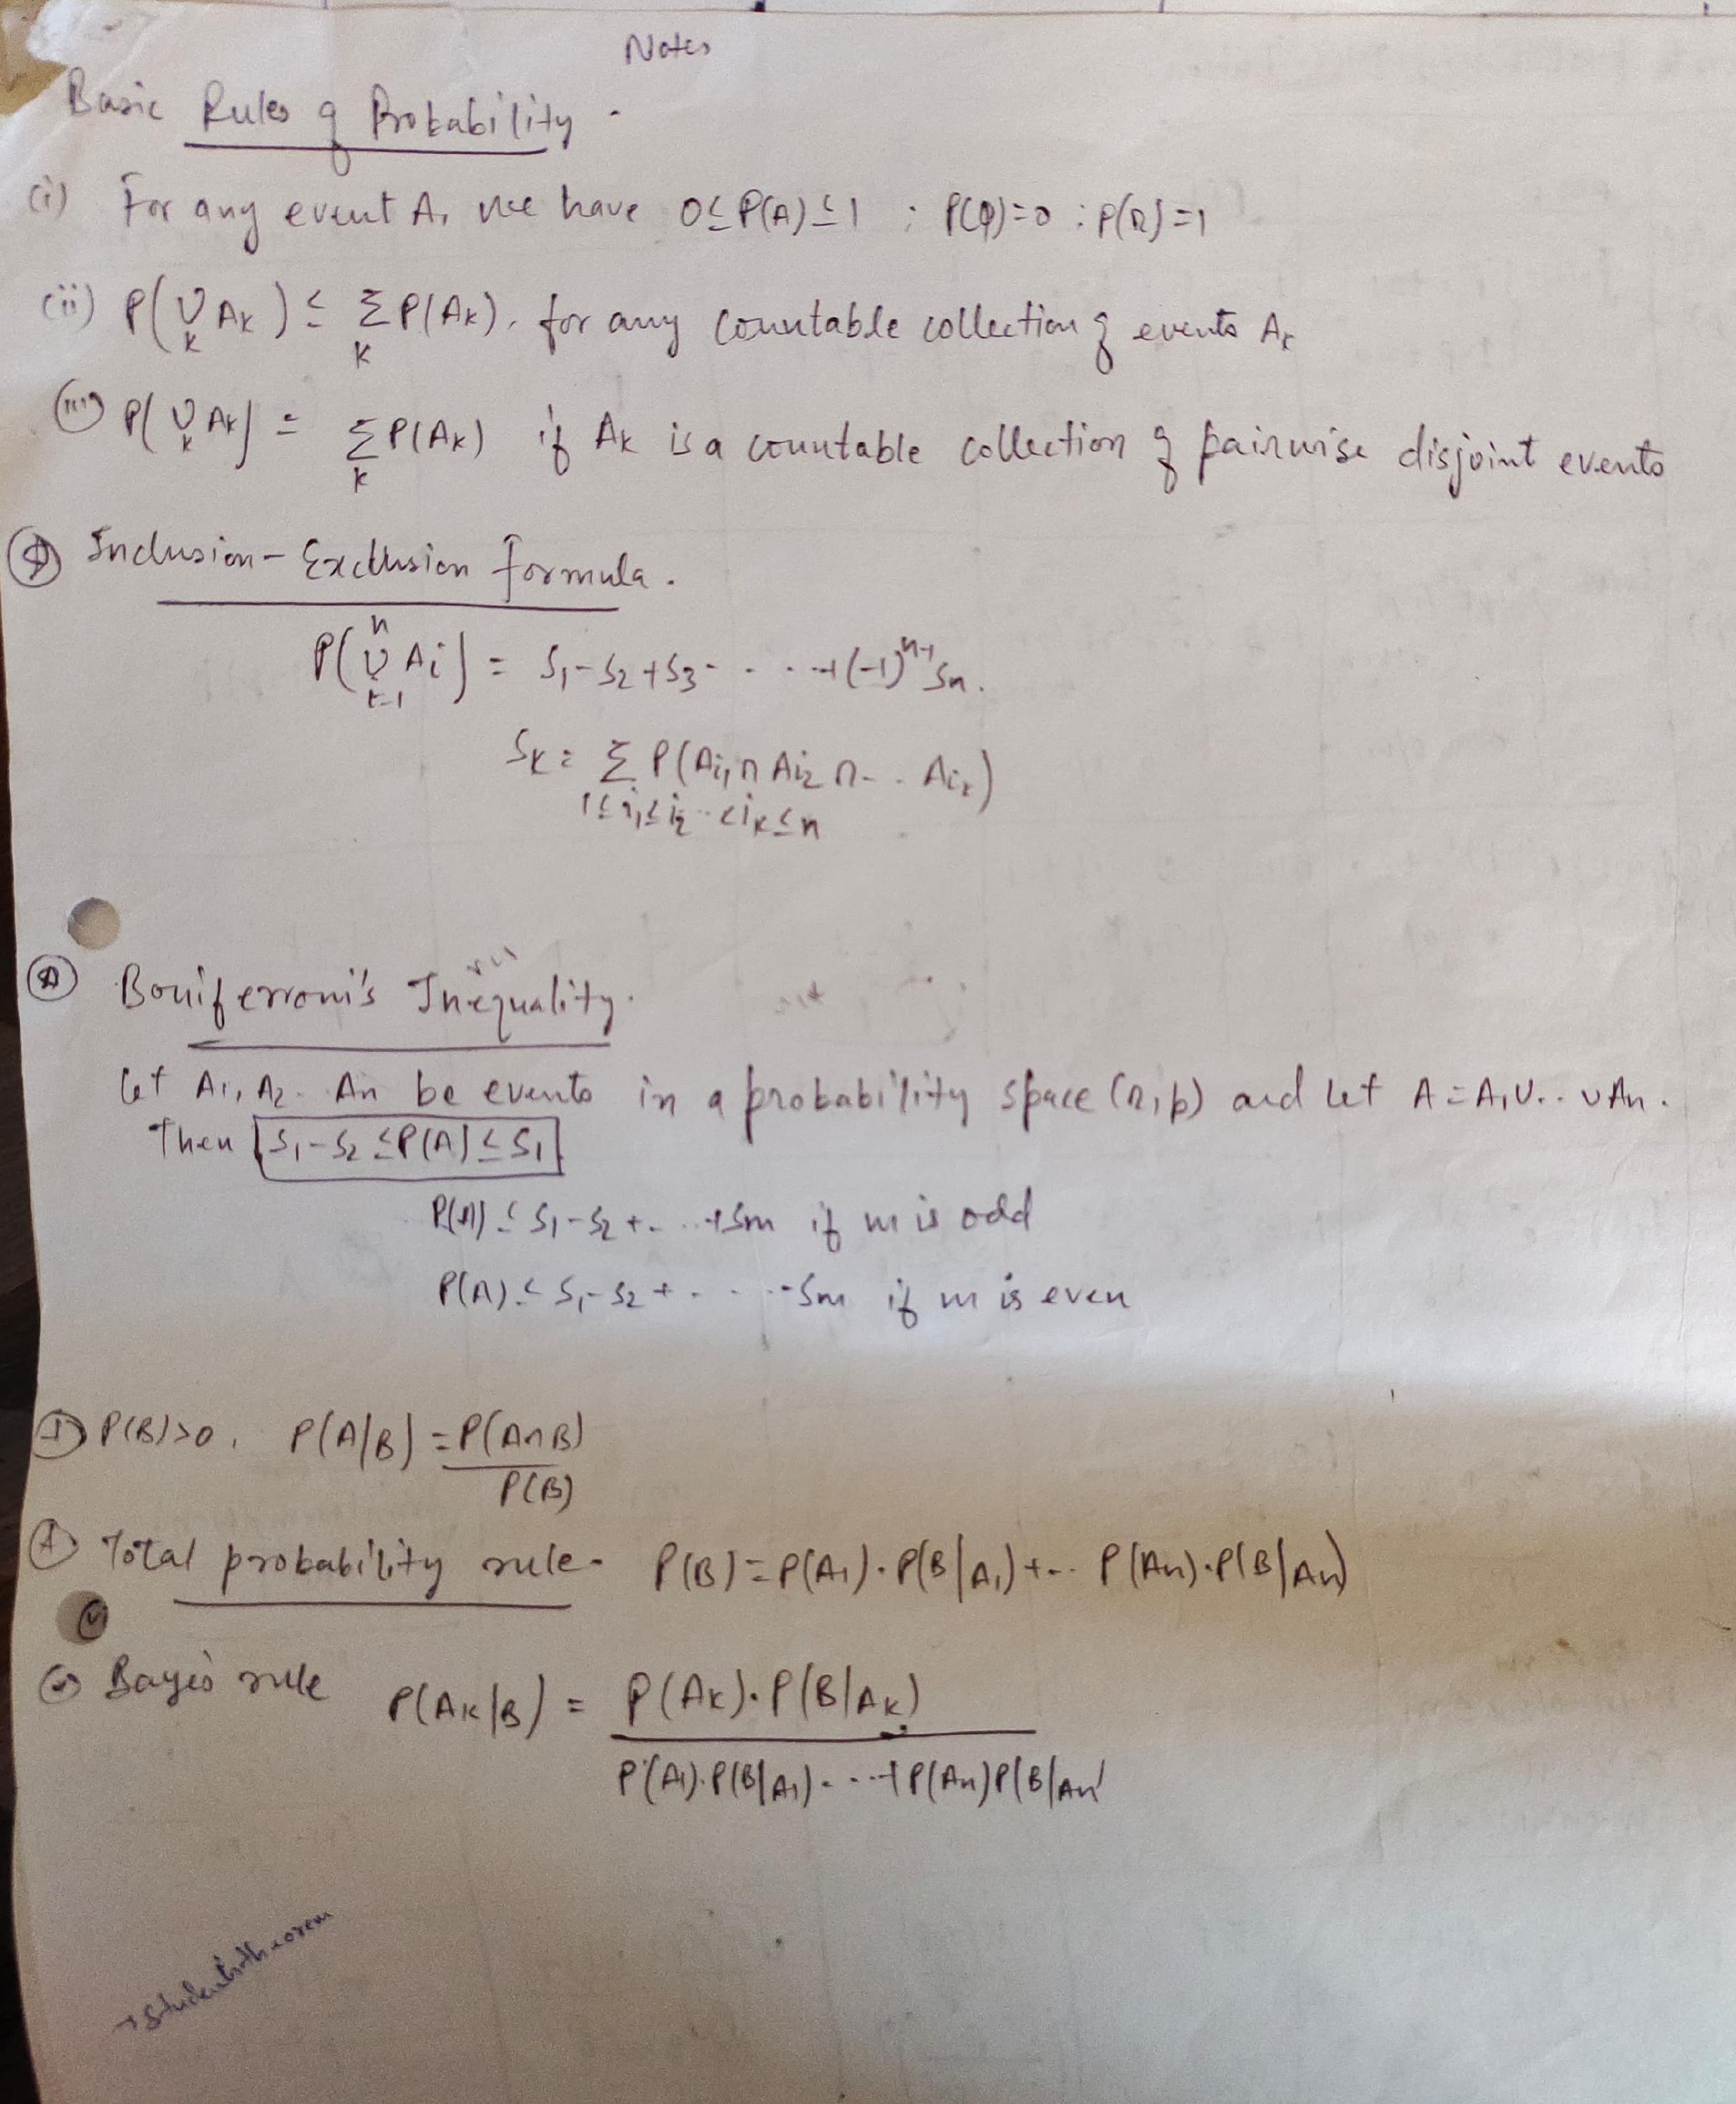 Notes
Basic Rules of Probability.
(i) For any event A, we have 0≤P(A)≤1 ; P(φ)=0 ; P(Ω)=1
(ii) P(∪_k A_k) ≤ Σ_k P(A_k), for any countable collection of events A_k
(iii) P(∪_k A_k) = Σ_k P(A_k) if A_k is a countable collection of pairwise disjoint events
Inclusion-Exclusion formula.
P(∪_{i=1}^n A_i) = S_1-S_2+S_3- . . . +(-1)^{n-1} S_n.
S_k = Σ_{1≤i_1≤i_2..<i_k≤n} P(A_{i_1}∩A_{i_2}∩-..A_{i_k})
Boniferroni's Inequality.
Let A_1, A_2.. A_n be events in a probability space (Ω,p) and let A=A_1∪..∪A_n.
Then S_1-S_2≤P(A)≤S_1
P(A)≤S_1-S_2+....+S_m if m is odd
P(A)≤S_1-S_2+.....-S_m if m is even
P(B)>0, P(A|B) = P(A∩B)/P(B)
Total probability rule- P(B)=P(A_1).P(B|A_1)+.. P(A_n).P(B|A_n)
Bayes rule P(A_k|B) = P(A_k).P(B|A_k)/P(A_1).P(B|A_1)-..+P(A_n)P(B|A_n)
→Student's theorem